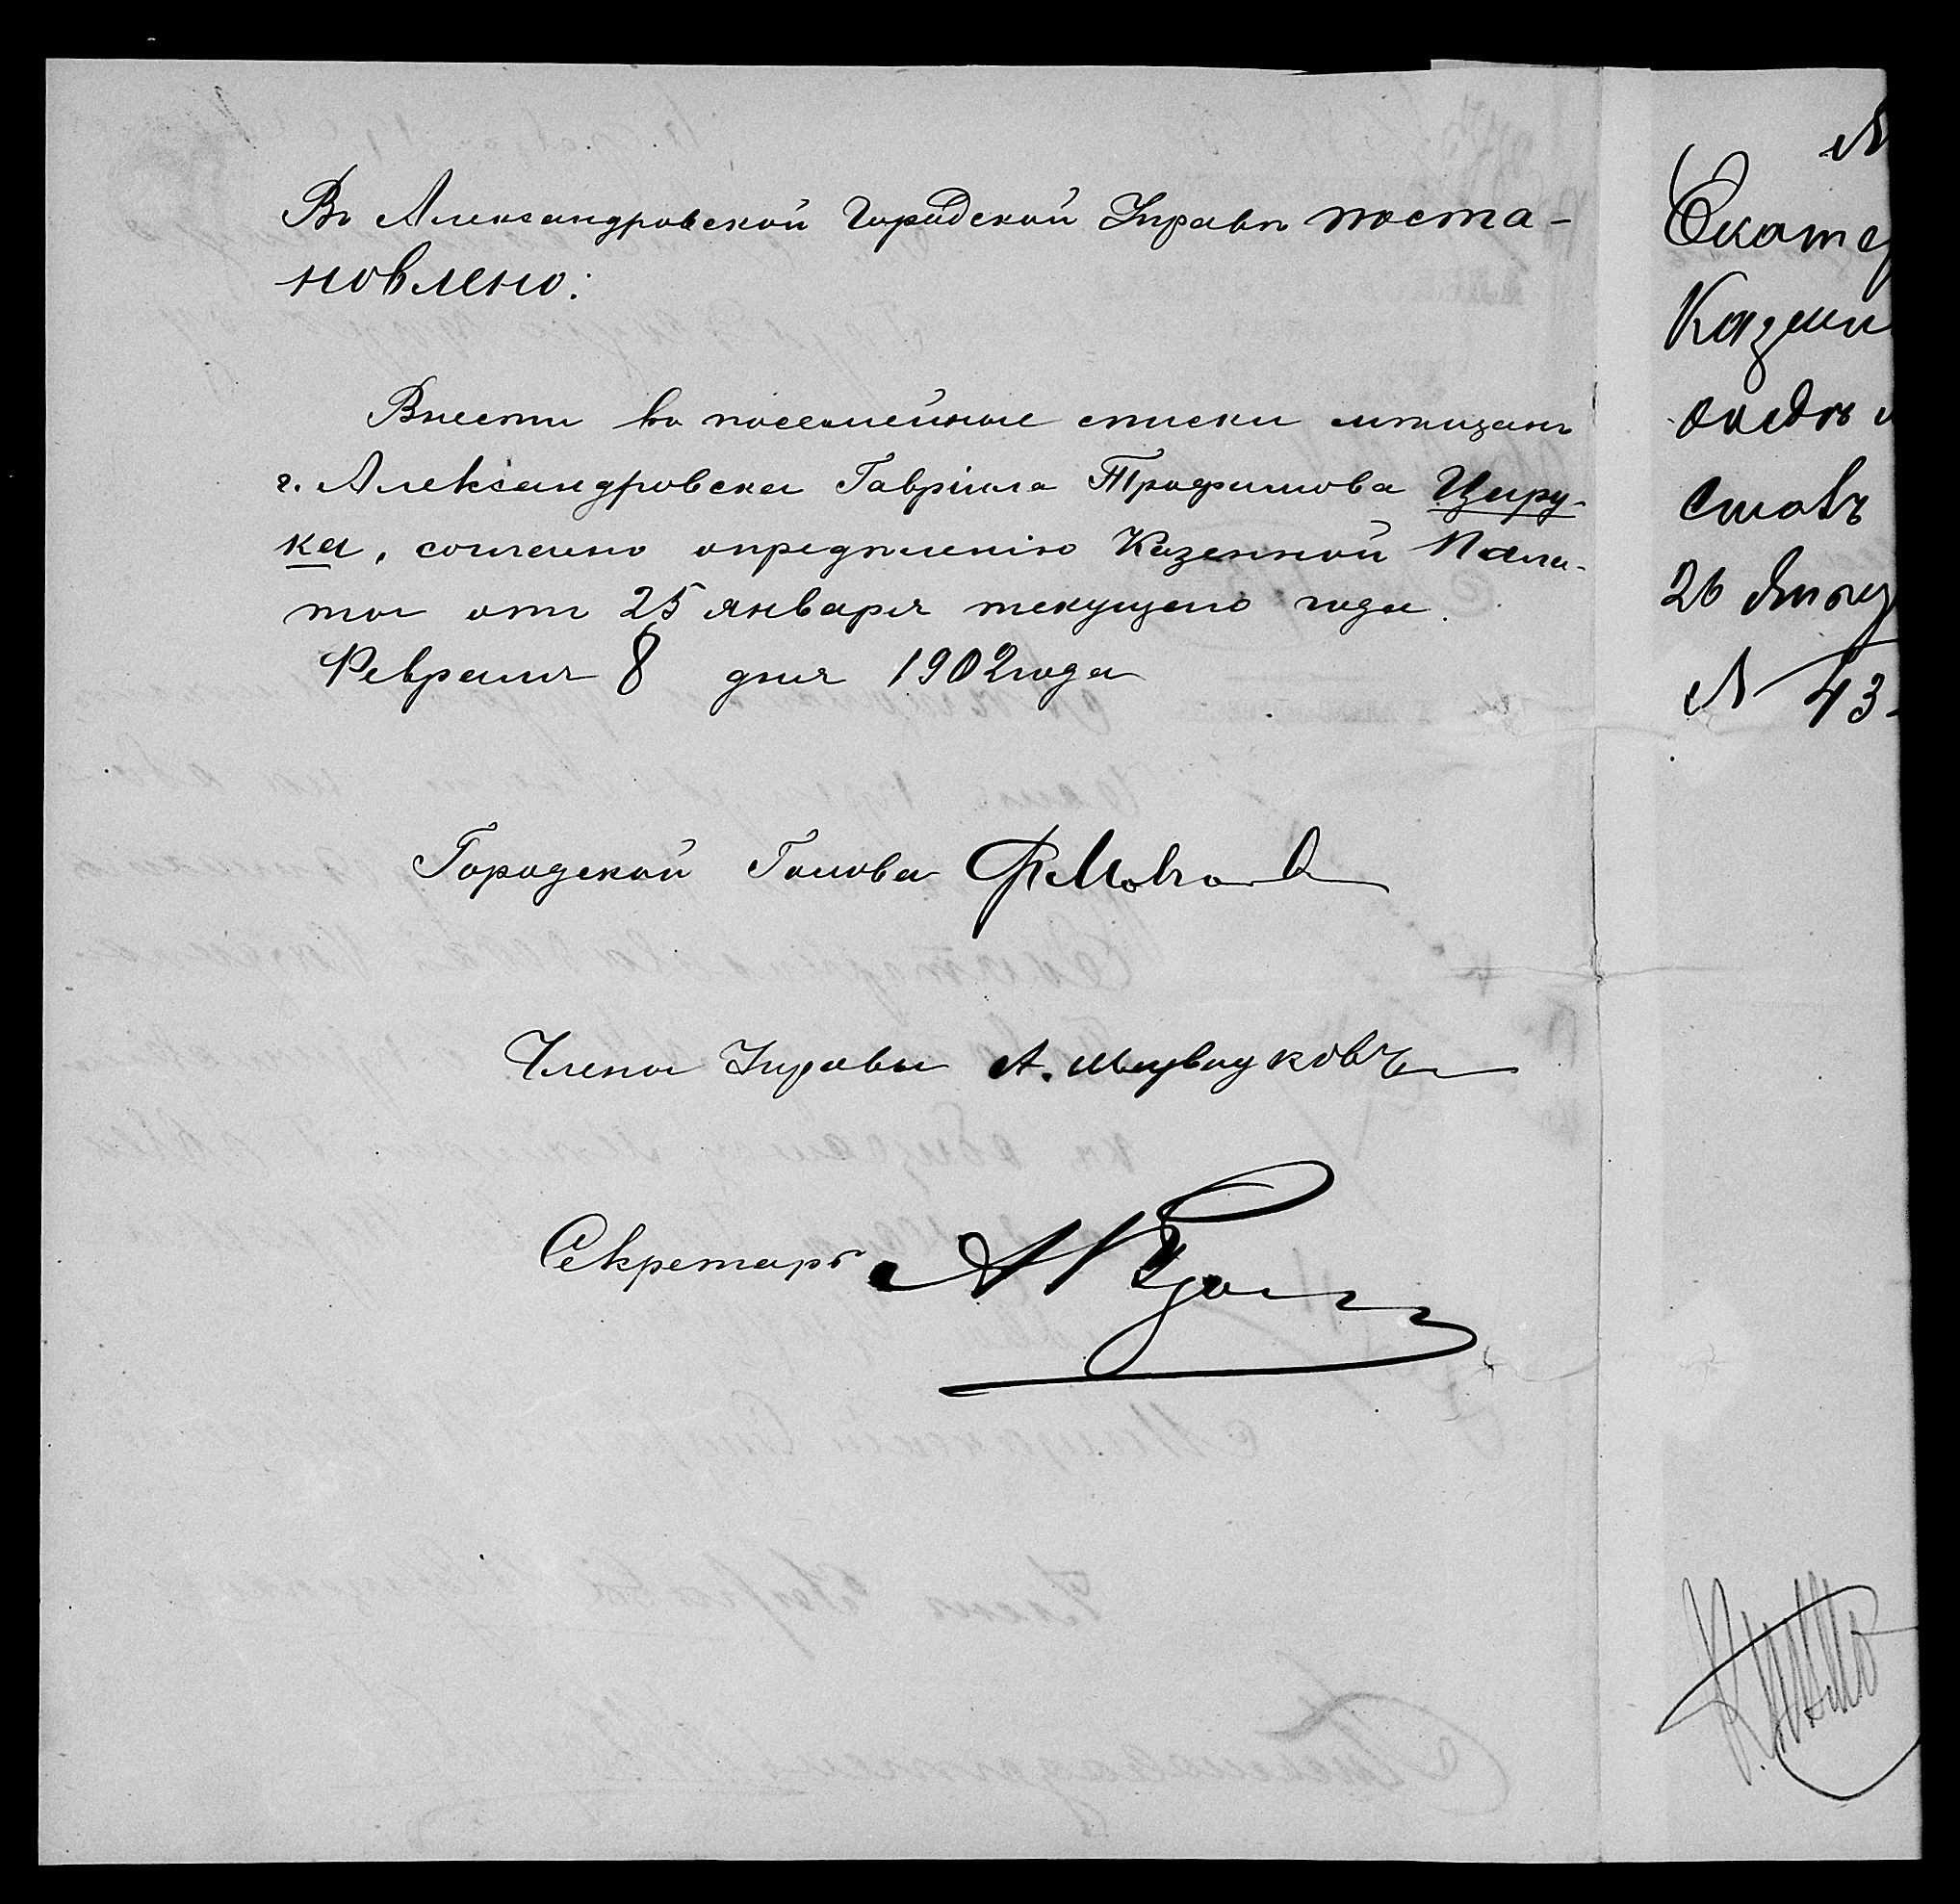 Въ Александровской Городской Управѣ поста-
новлено:
Внести въ посемейные списки мѣщанъ
г. Александровска Гавріила Трофимова Цыру-
ка, согласно опредѣленію Казенной Пала-
ты отъ 25 января текущаго года.
Февраля 8 дня 1902 года
Городской Голова
Члены Управы А.
Секретарь А
№
Екатер
Казен
26 Янва
№ 43